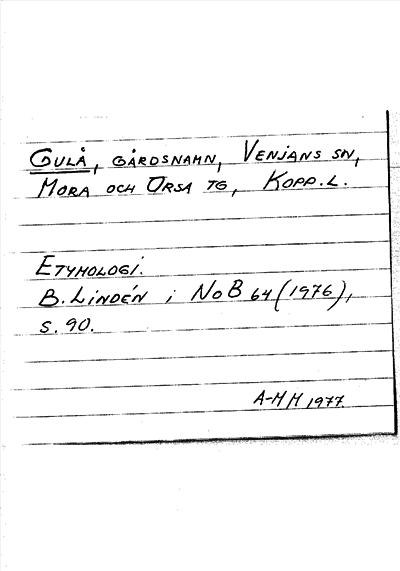 Gulå, gårdsnamn, Venjans sn,
Mora och Orsa tg, Kopp.l.
Etymologi.
B. Lindén i NoB 64 (1976),
s. 90.
A-MH 1977.